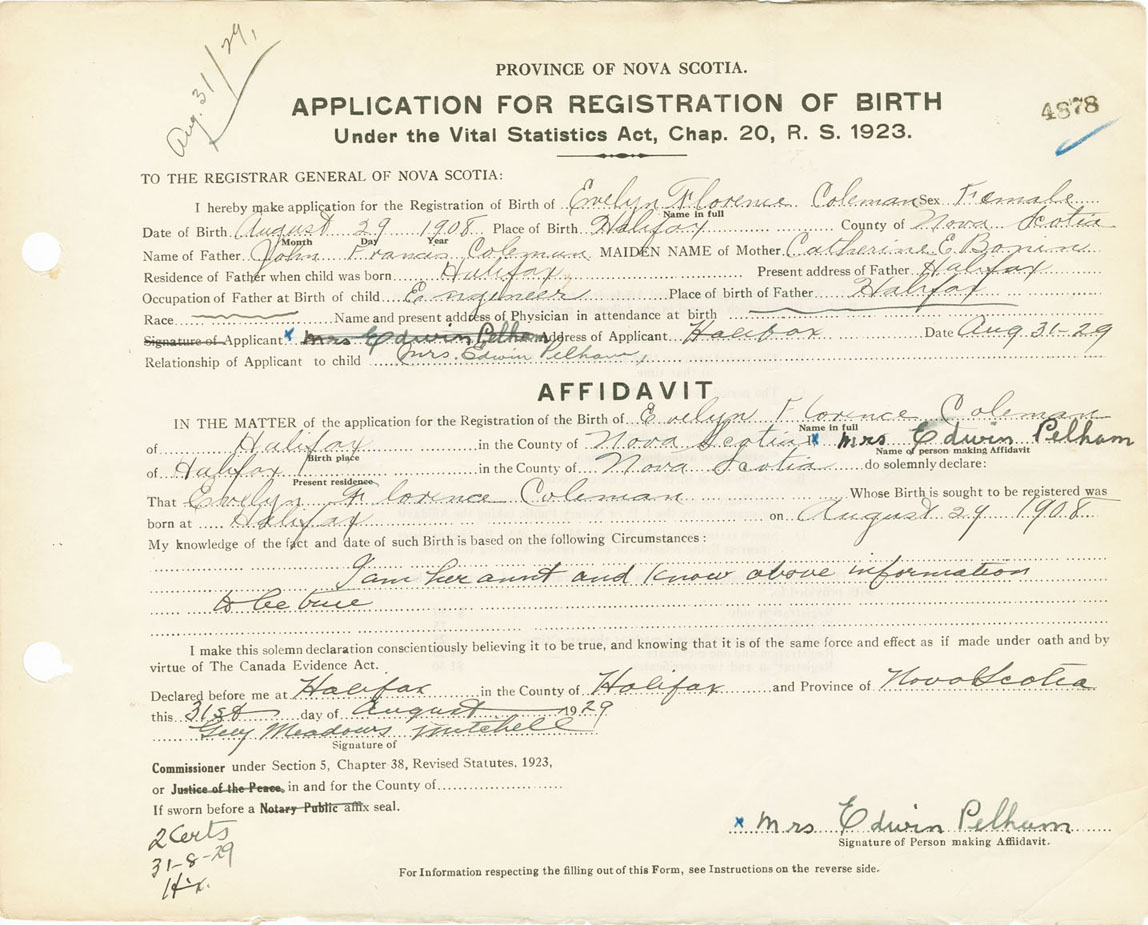 Aug. 31/29,
PROVINCE OF NOVA SCOTIA.
APPLICATION FOR REGISTRATION OF BIRTH
4878
Under the Vital Statistics Act, Chap. 20, R. S. 1923.
TO THE REGISTRAR GENERAL OF NOVA SCOTIA:
I hereby make application for the Registration of Birth of Evelyn Florence Coleman Sex Female
Name in full
Date of Birth August 29 1908 Place of Birth Halifax County of Nova Scotia
Month Day Year
Name of Father John Francis Coleman MAIDEN NAME of Mother Catherine E Bonin
Residence of Father when child was born Halifax Present address of Father Halifax
Occupation of Father at Birth of child Engineer Place of birth of Father Halifax
Race Name and present address of Physician in attendance at birth
Signature of Applicant x Mrs Edwin Pelham Address of Applicant Halifax Date Aug. 31-29
Relationship of Applicant to child Mrs. Edwin Pelham,
AFFIDAVIT
IN THE MATTER of the application for the Registration of the Birth of Evelyn Florence Coleman
Name in full
of Halifax in the County of Nova Scotia I x Mrs Edwin Pelham
Birth place Name of person making Affidavit
of Halifax in the County of Nova Scotia do solemnly declare:
Present residence
That Evelyn Florence Coleman Whose Birth is sought to be registered was
born at Halifax on August 29 1908
My knowledge of the fact and date of such Birth is based on the following Circumstances:
I am her aunt and know above information
to be true
I make this solemn declaration conscientiously believing it to be true, and knowing that it is of the same force and effect as if made under oath and by
virtue of The Canada Evidence Act.
Declared before me at Halifax in the County of Halifax and Province of Nova Scotia
this 31st day of August 1929
Guy Meadows Mitchell
Signature of
Commissioner under Section 5, Chapter 38, Revised Statutes, 1923,
or Justice of the Peace, in and for the County of
If sworn before a Notary Public affix seal.
2 Certs
31-8-29
Hx.
x Mrs Edwin Pelham
Signature of Person making Affidavit.
For Information respecting the filling out of this Form, see Instructions on the reverse side.